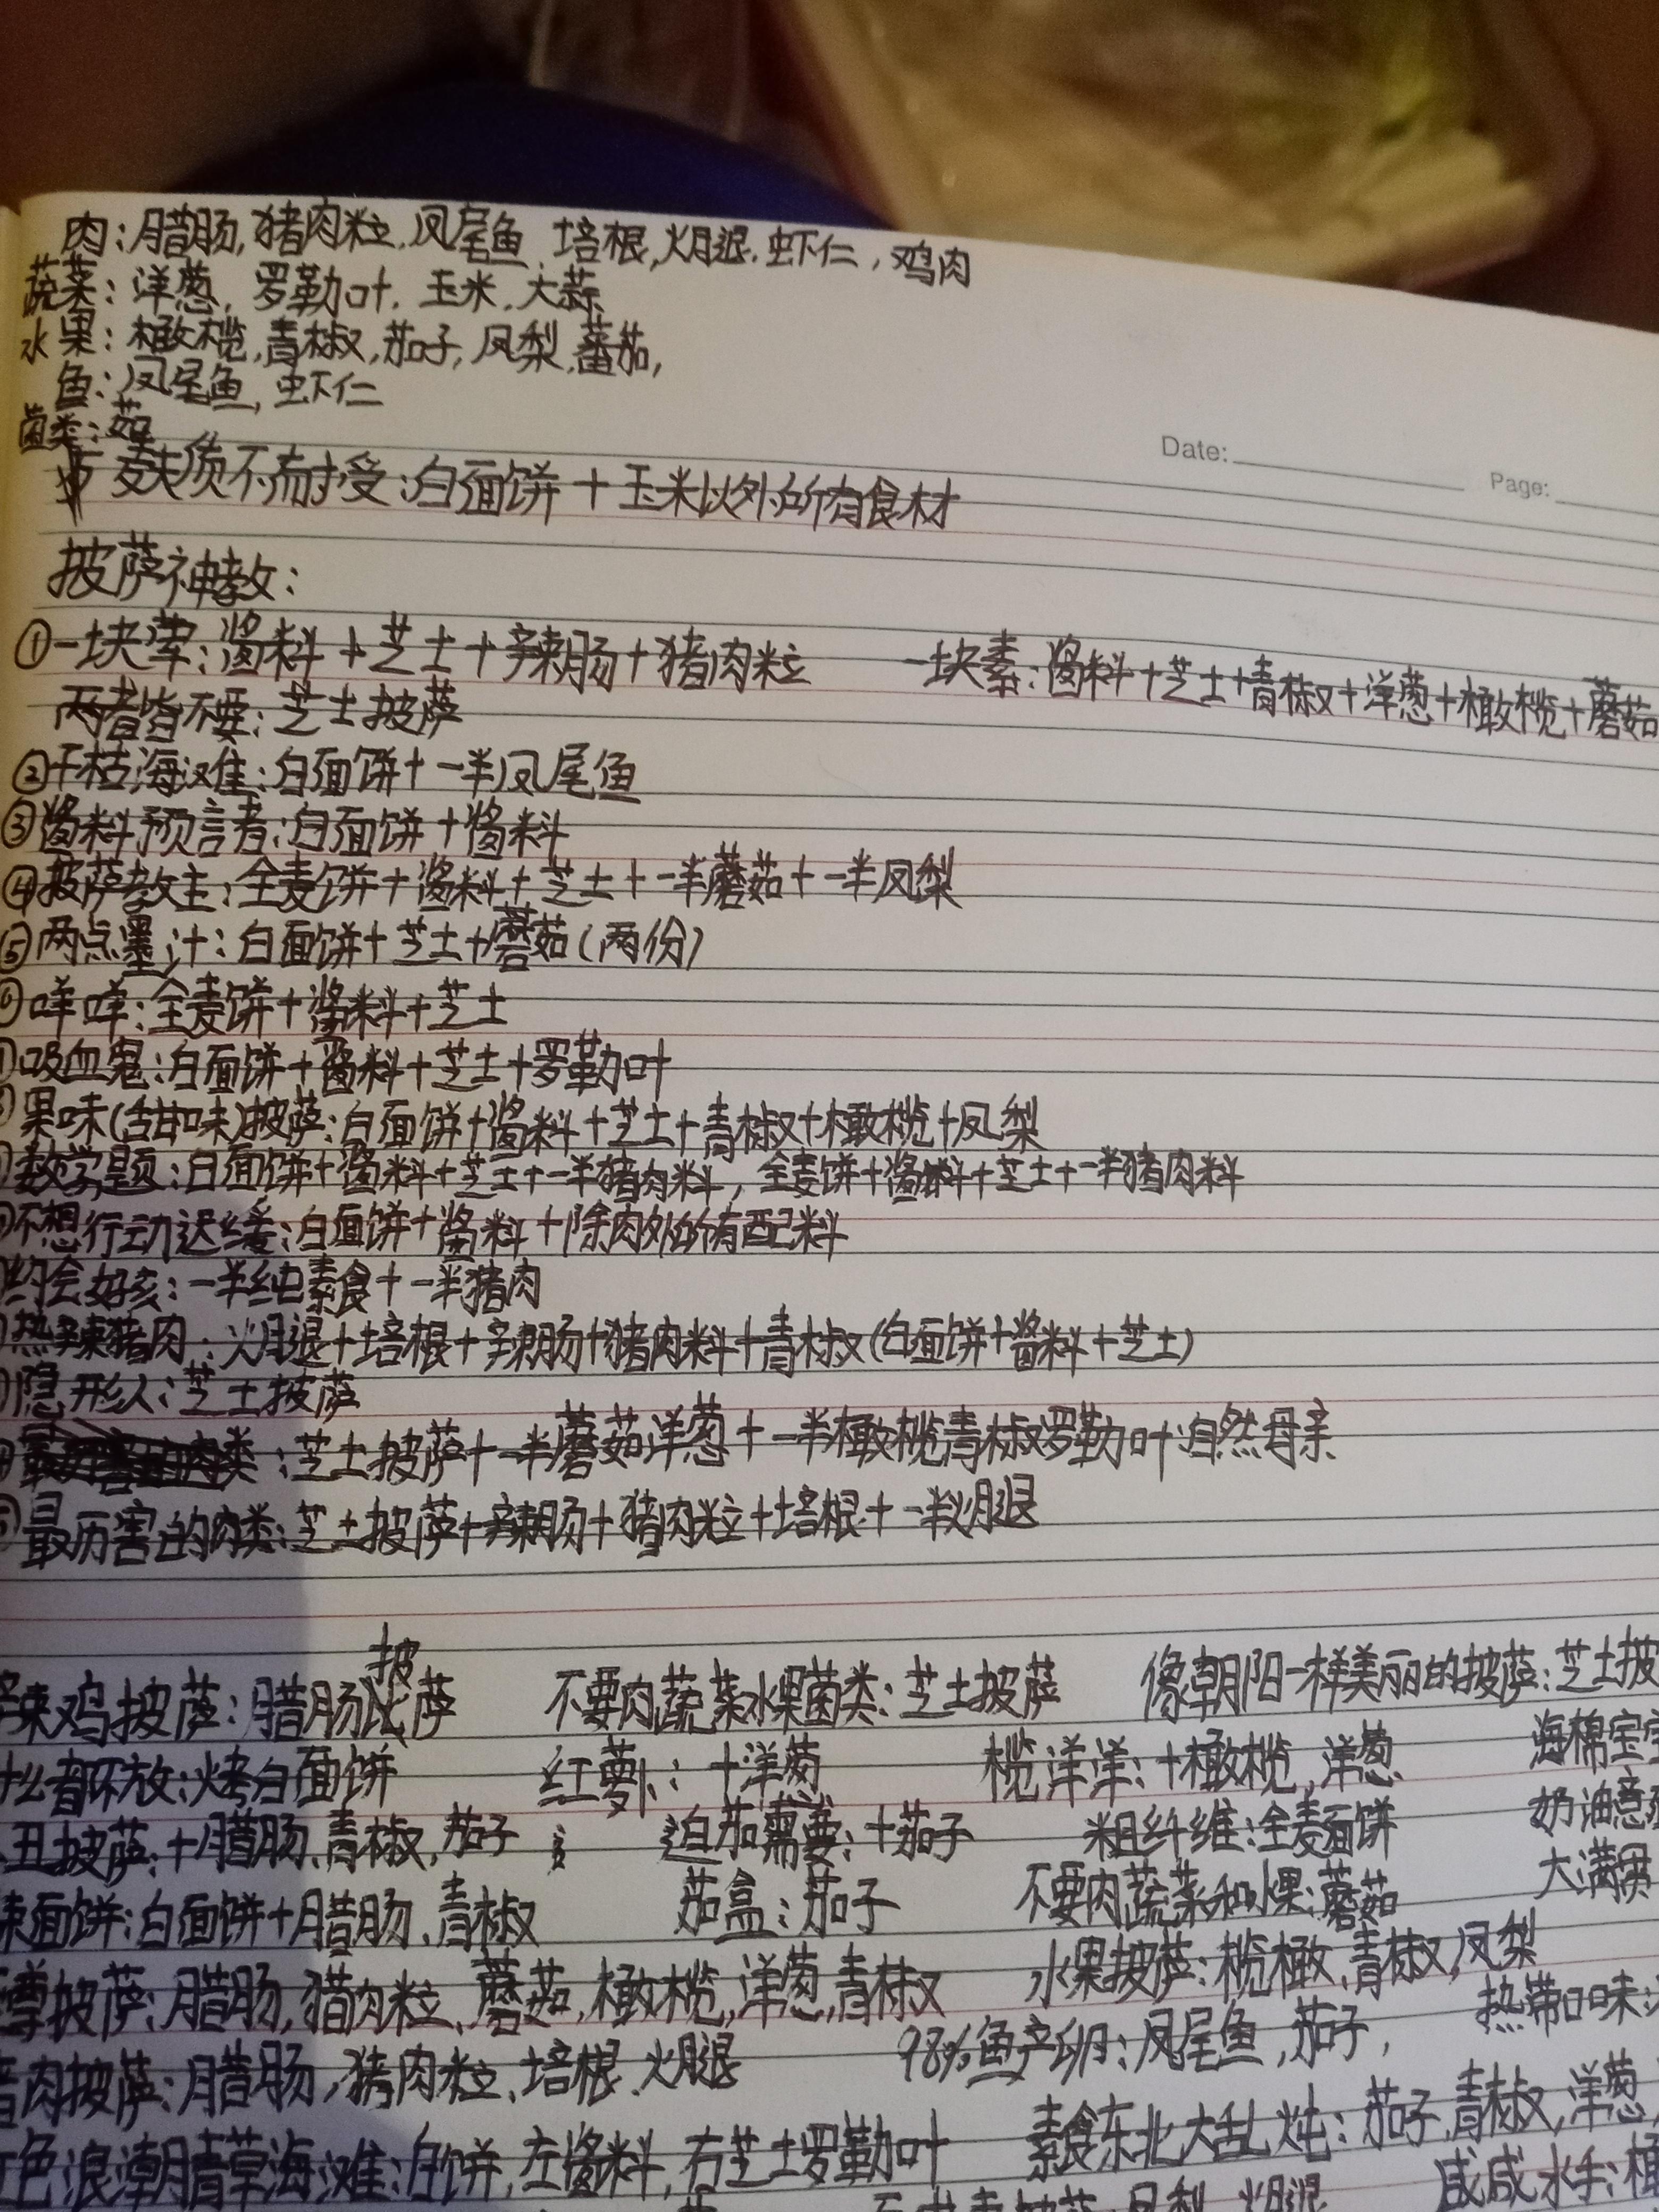 肉:腊肠,猪肉粒,凤尾鱼,培根,火腿,虾仁,鸡肉
蔬菜:洋葱,罗勒叶,玉米,大蒜
水果:橄榄,青椒,茄子,凤梨,蕃茄,
鱼:凤尾鱼,虾仁
菌类:茹
麸质不耐受:白面饼+玉米以外所有食材
Date:
Page:
披萨神教:
①一块荤:酱料+芝士+辣肠+猪肉粒 一块素:酱料+芝士+青椒+洋葱+橄榄+蘑茹
两者皆不要:芝士披萨
②干枯海滩:白面饼+一半凤尾鱼
③酱料预言者:白面饼+酱料
④披萨教主:全麦饼+酱料+芝士+一半蘑茹+一半凤梨
⑤两点墨汁:白面饼+芝士+蘑茹(两份)
⑥咩咩:全麦饼+酱料+芝士
吸血鬼:白面饼+酱料+芝士+罗勒叶
果味(甜味)披萨:白面饼+酱料+芝士+青椒+橄榄+凤梨
数学题:白面饼+酱料+芝士+一半猪肉料,全麦饼+酱料+芝士+一半猪肉料
不想行动迟缓:白面饼+酱料+除肉外所有配料
约会好亥:一半纯素食+一半猪肉
热辣猪肉:火腿+培根+辣肠+猪肉料+青椒(白面饼+酱料+芝士)
隐形人:芝士披萨
:芝士披萨+一半蘑茹洋葱+一半橄榄青椒罗勒叶:自然母亲
最历害的肉类:芝士披萨+辣肠+猪肉粒+培根+一半火腿
披
辣鸡披萨:腊肠萨 不要肉蔬菜水果菌类:芝士披萨 像朝阳一样美丽的披萨:芝士披
什么都不放:烤白面饼 红萝卜:+洋葱 榄洋洋:+橄榄,洋葱 海棉宝宝
丑披萨:+腊肠,青椒,茄子 迫茄需要:+茄子 粗纤维:全麦面饼 奶油意
辣面饼:白面饼+腊肠,青椒 茄盒:茄子 不要肉蔬菜和水果:蘑茹 大满贯
尊披萨:腊肠,猪肉粒,蘑茹,橄榄,洋葱,青椒 水果披萨:榄橄,青椒,凤梨
猪肉披萨:腊肠,猪肉粒,培根,火腿 98%鱼产卵:凤尾鱼,茄子, 热带口味:
色浪潮青草海滩:白饼,左酱料,右芝士罗勒叶 素食东北大乱炖:茄子,青椒,洋葱
凤梨,火腿 咸咸水手:橄